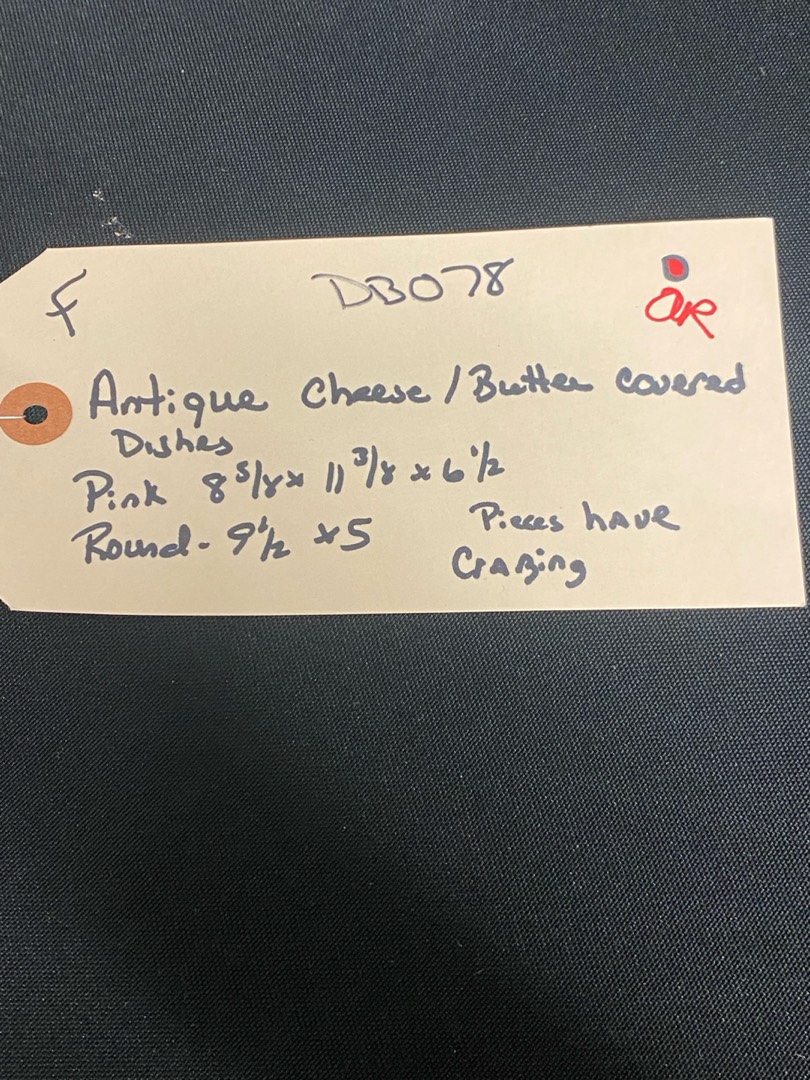 F
DB078
OR
Antique Cheese/Butter covered
Dishes
Pink 8 5/8 x 11 3/8 x 6 1/2
Round - 9 1/2 x 5
Pieces have
Crazing